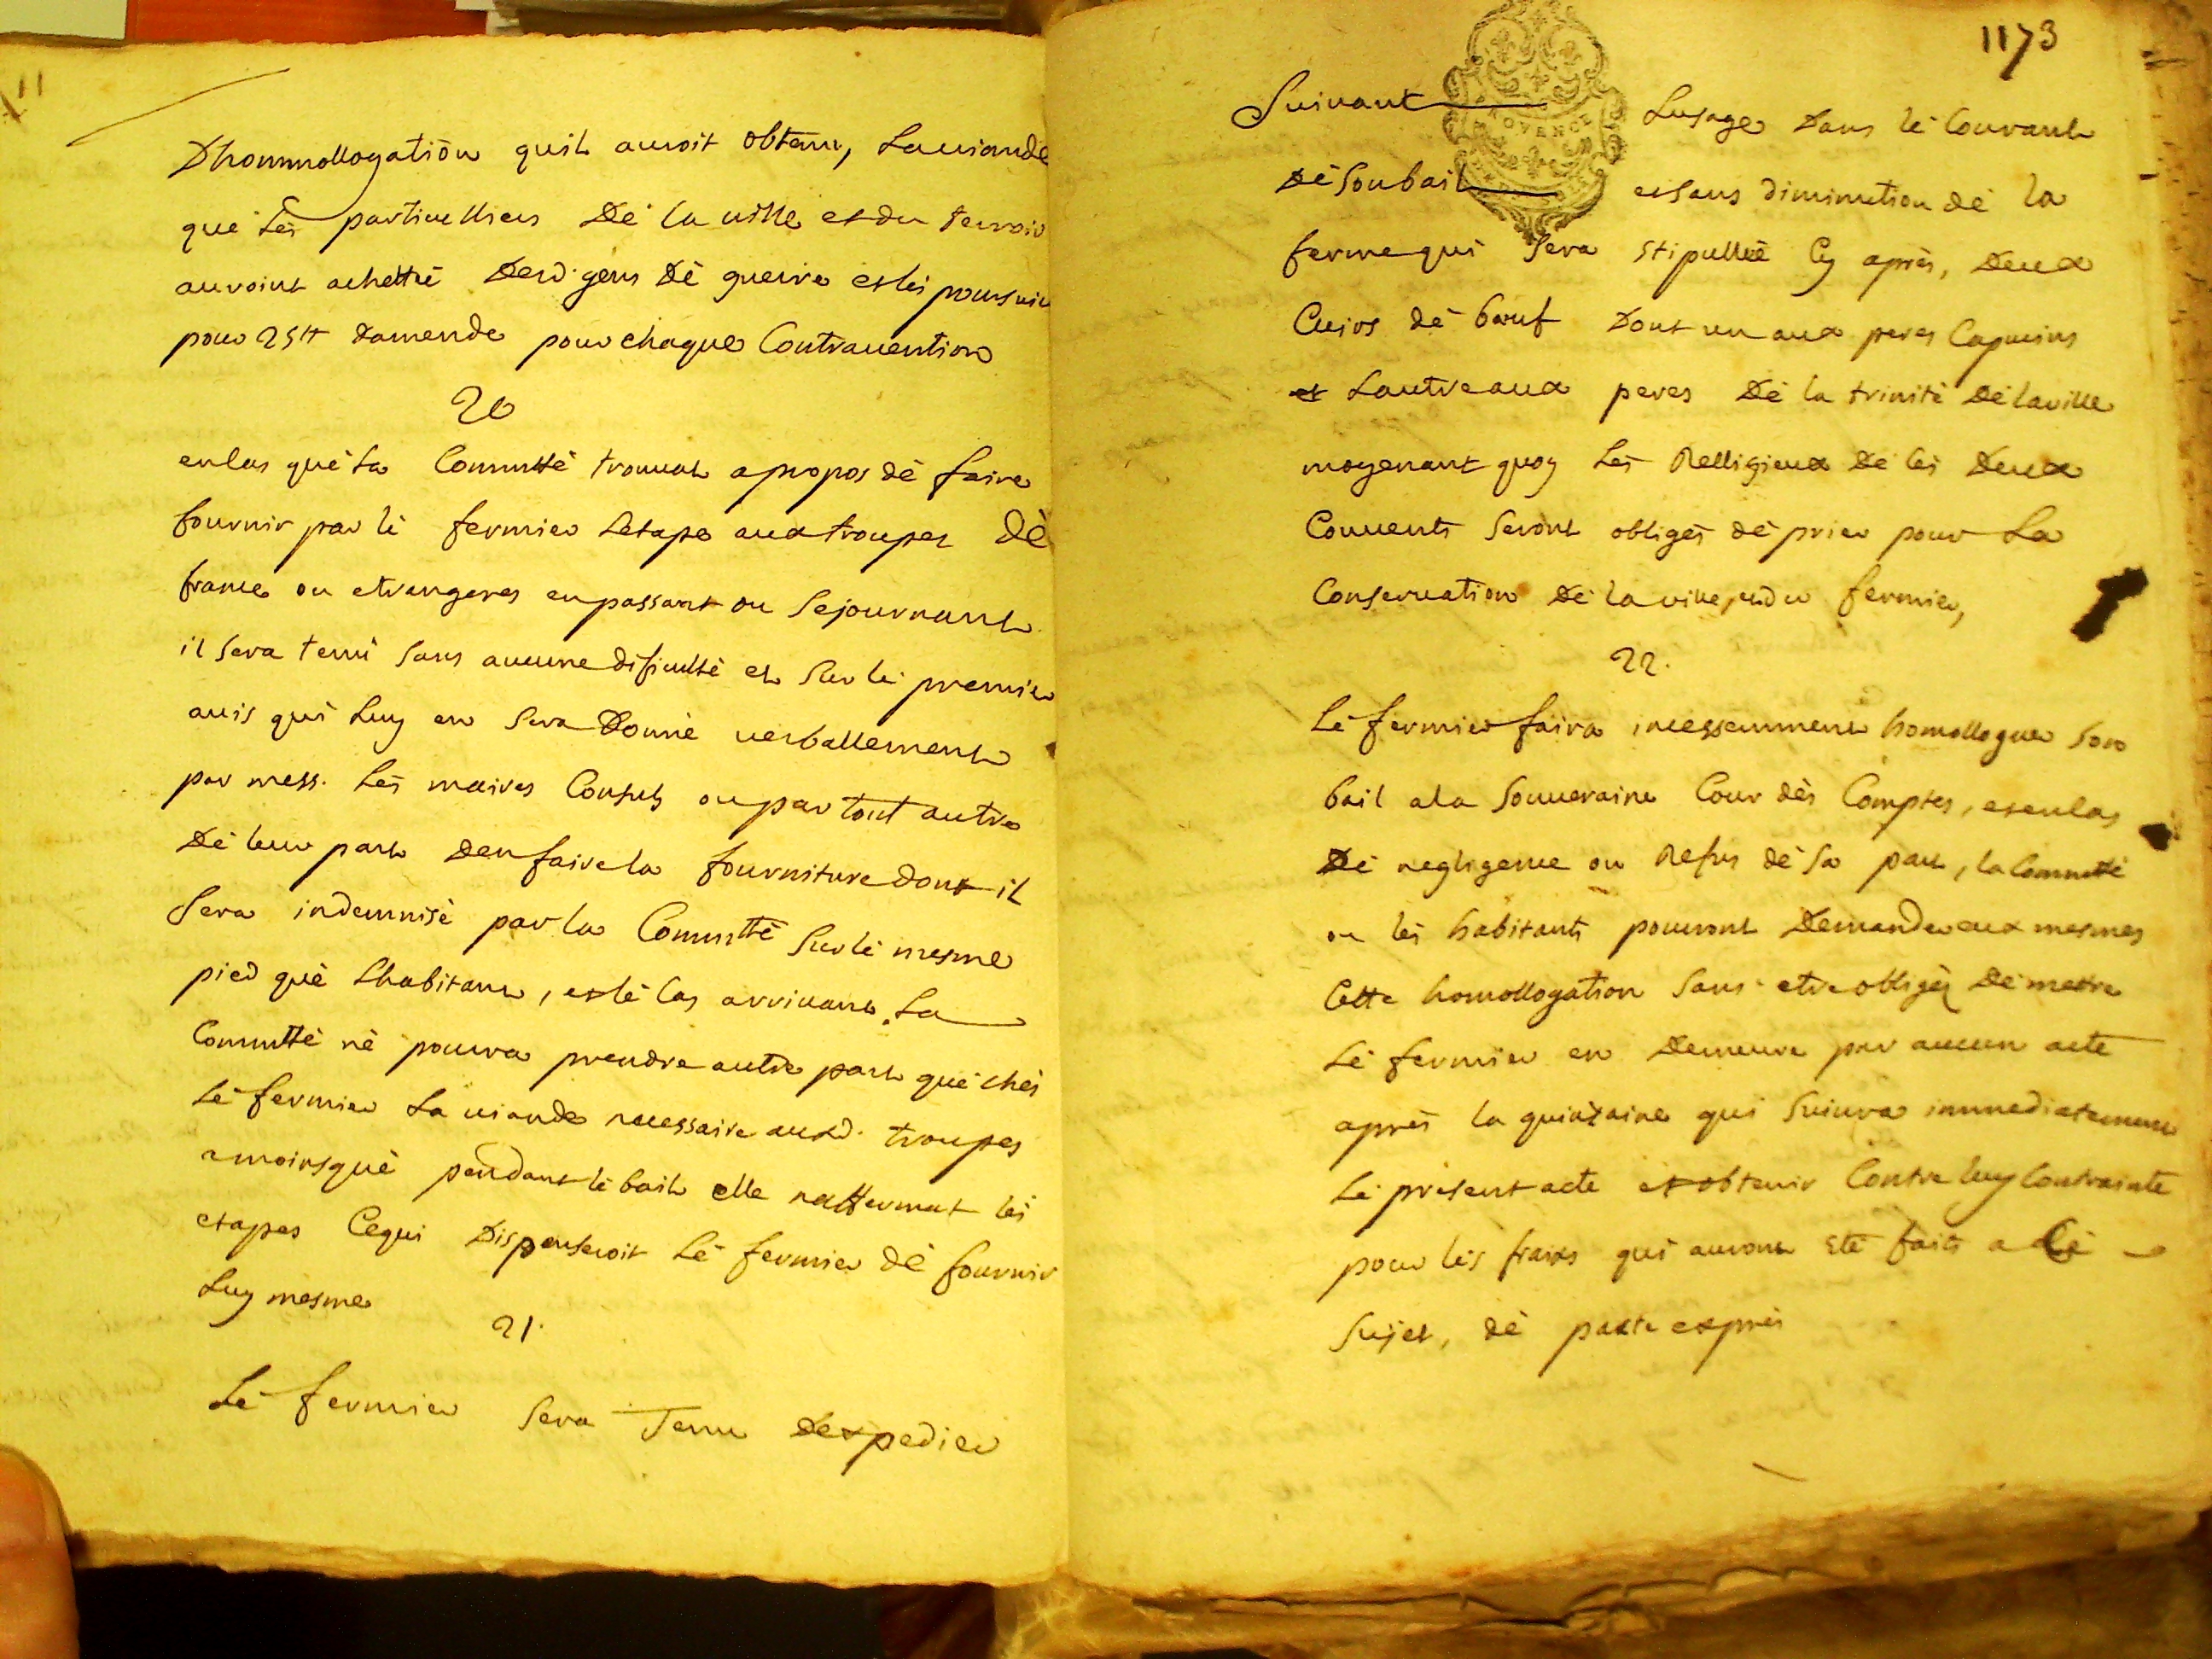 Dhommollogation quil auroit obtenu, La viande
que Les particulliers De la ville et du terroir
auroint achetté Desd. gens Dé guerre et les poursuivre
pour 25tt Damende pour chaque Contravention
20
en Cas qué La Commtté trouvat a propos dé faire
fournir par lé fermier Letape aux troupes Dé
france ou etrangeres en passant ou Sejournant
il Sera tenu Sans aucune dificulté et Sur lé premier
avis qui Luy en Sera Donné verballement
par mess. Les maires Consuls ou par tout autre
Dé leur part Den faire la fourniture dont il
Sera indemnisé par la Commtté Sur lé mesme
pied qué Lhabitant, et lé Cas arrivant La
Commtté né pourra prendre autre part qué chés
Lé fermier La viande necessaire auxd. troupes
a moins qué pendant lé bail elle naffermat les
etapes Cequi Dispenseroit Lé fermier dé fournir
Luy mesme
21.
Lé fermier Sera Tenu Dexpedier
1173
Suivant Lusage Dans lé Courant
PROVENCE
Dé Son bail et Sans diminution dé la
ferme qui Sera Stipullée Cy aprés, Deux
Cuirs dé bœuf Dont un aux peres Capucins
et Lautre aux peres Dé la trinité Dé la ville
moyenant quoy Les Relligieux Dé Ces Deux
Couvents Seront obligés dé prier pour La
Conservation Dé la ville, et du fermier,
22.
Lé fermier faira incessemment homolloguer Son
bail a la Souveraine Cour dés Comptes, et en Cas
Dé negligence ou Refus dé Sa part, la Commtté
ou les habitants pourront Demander aux mesmes
Cette homollogation Sans etre obligés Dé mettre
Lé fermier en Demeure par aucun acte
aprés la quinzaine qui Suivra immediatement
Lé present acte et obtenir Contre luy Contrainte
pour les fraixs qui auront eté faits a Cé
Sujet, dé pacte exprés